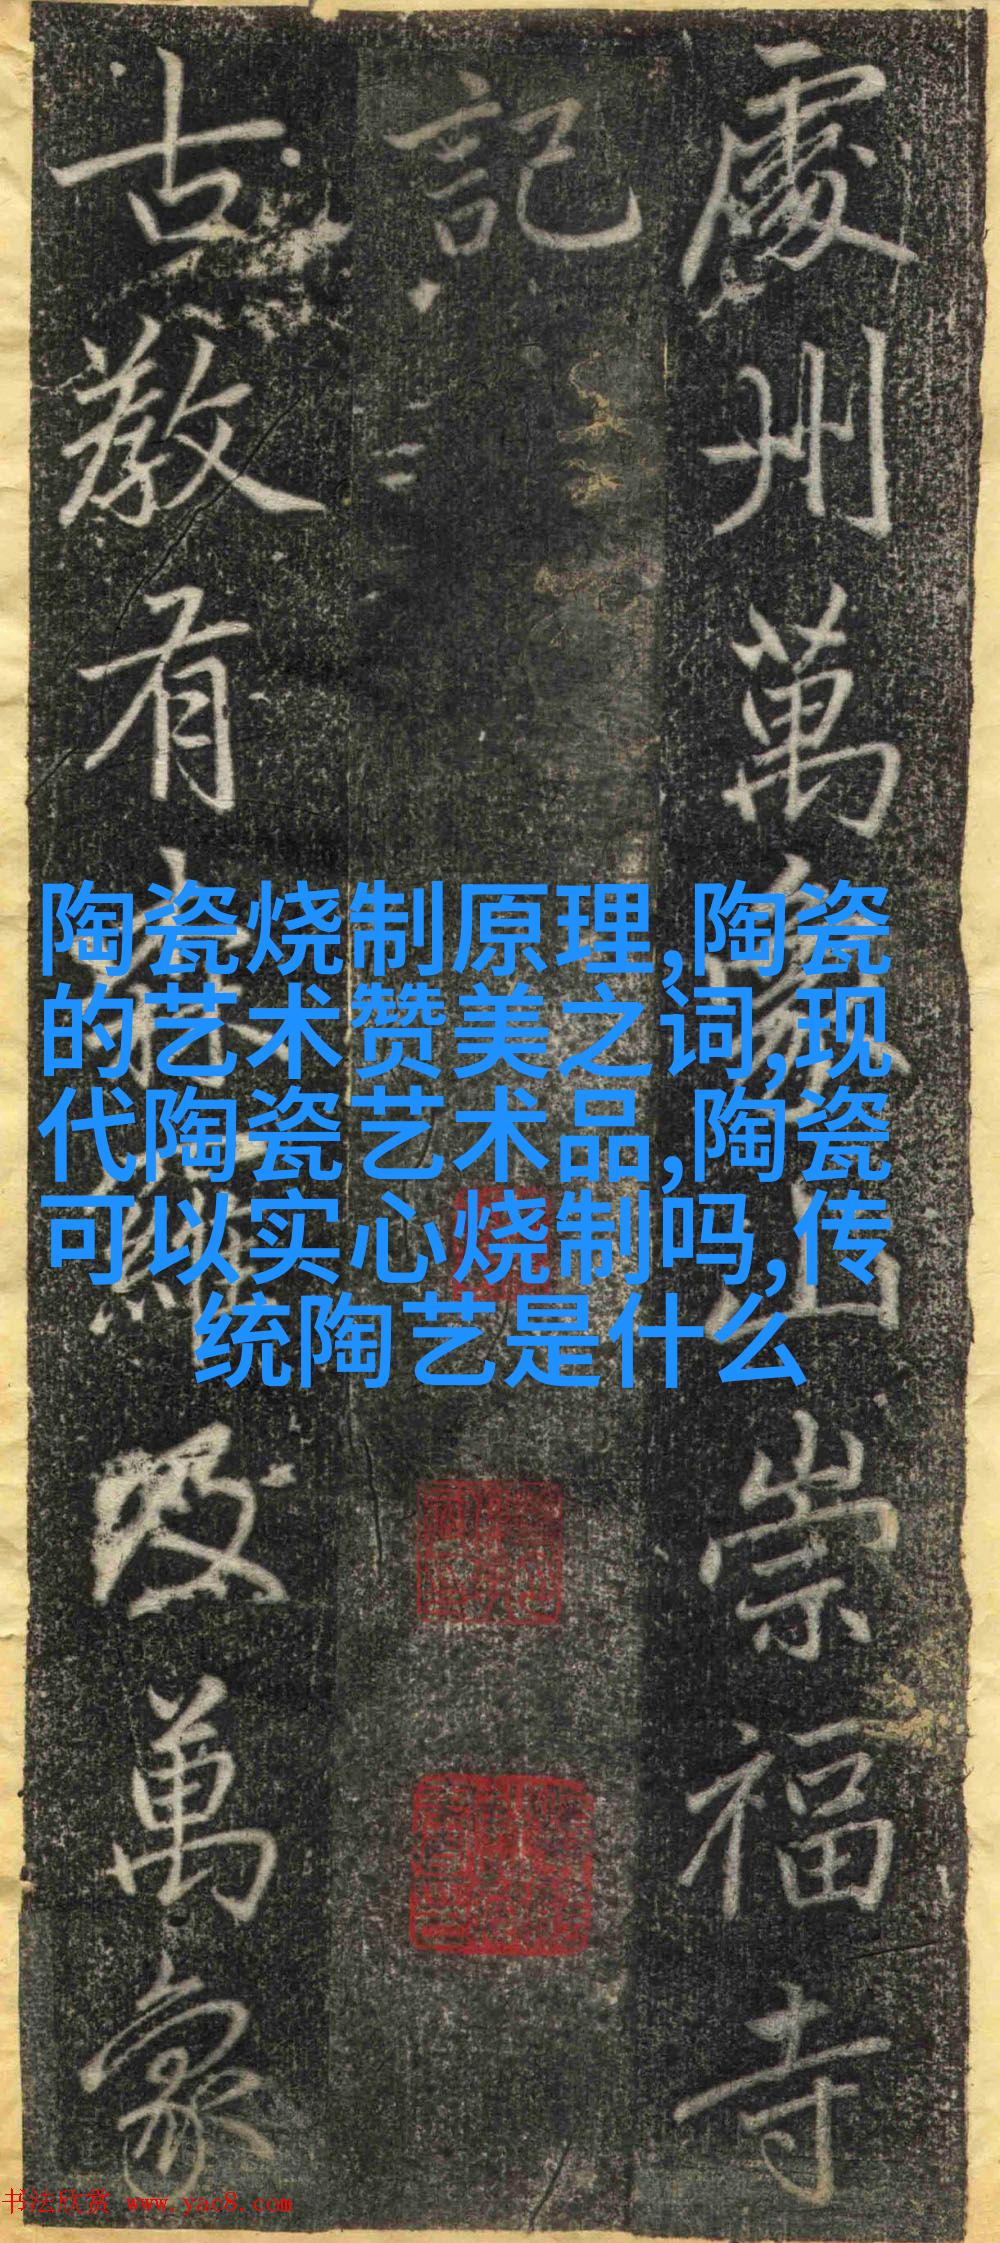 處州萬象山崇福寺
記
古教有森羅及萬象
陶瓷烧制原理,陶瓷
的艺术赞美之词,现
代陶瓷艺术品,陶瓷
可以实心烧制吗,传
统陶艺是什么
书法欣赏 www.yac8.com